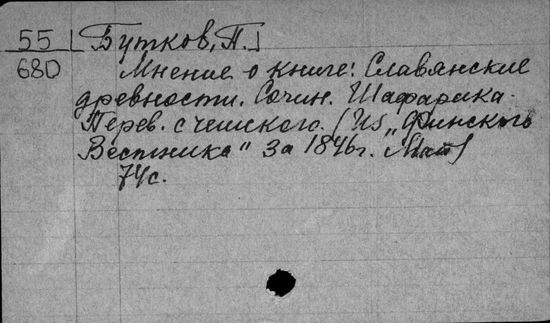 55 [Бутков, П.]
680 Мнение о книге: Славянские
древности. Сочин. Шафарика.
Перев. с чешского. (Из „Финского
Вестника" за 1846г. Май)
74с.